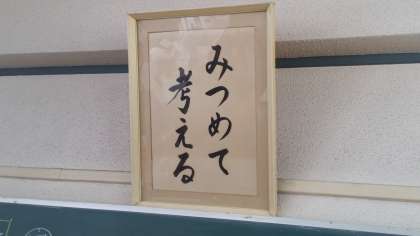 みつめて
考える